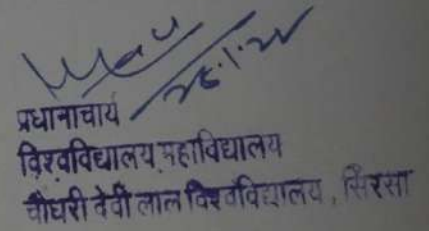 प्रधानाचार्य
विश्वविद्यालय महाविद्यालय
चौधरी देवी लाल विश्वविद्यालय, सिरसा